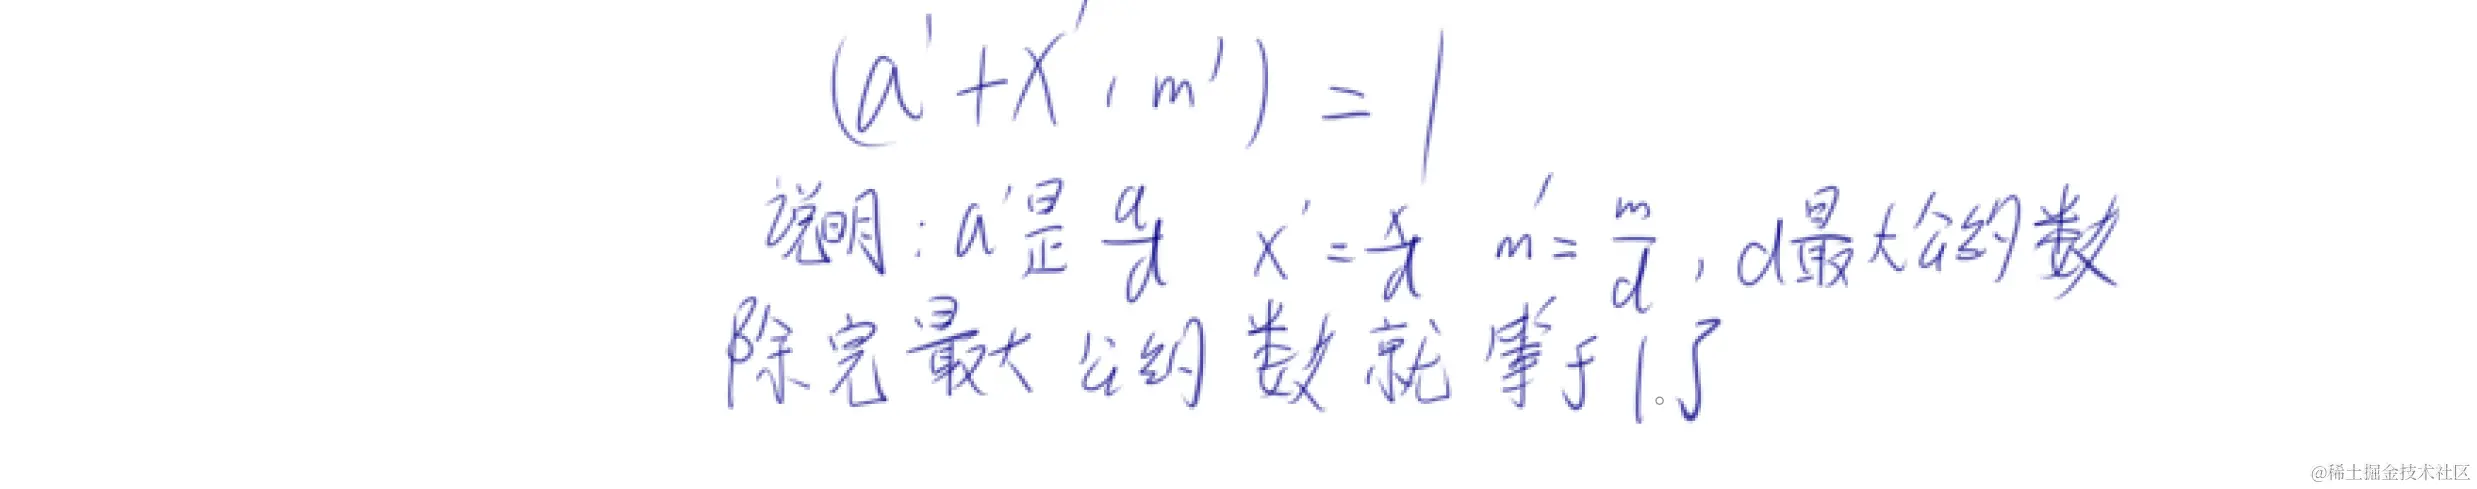 (a'+x', m') = 1
说明: a'是 a/d x' = x/d m' = m/d, d最大公约数
除完最大公约数就等于1了。
@稀土掘金技术社区